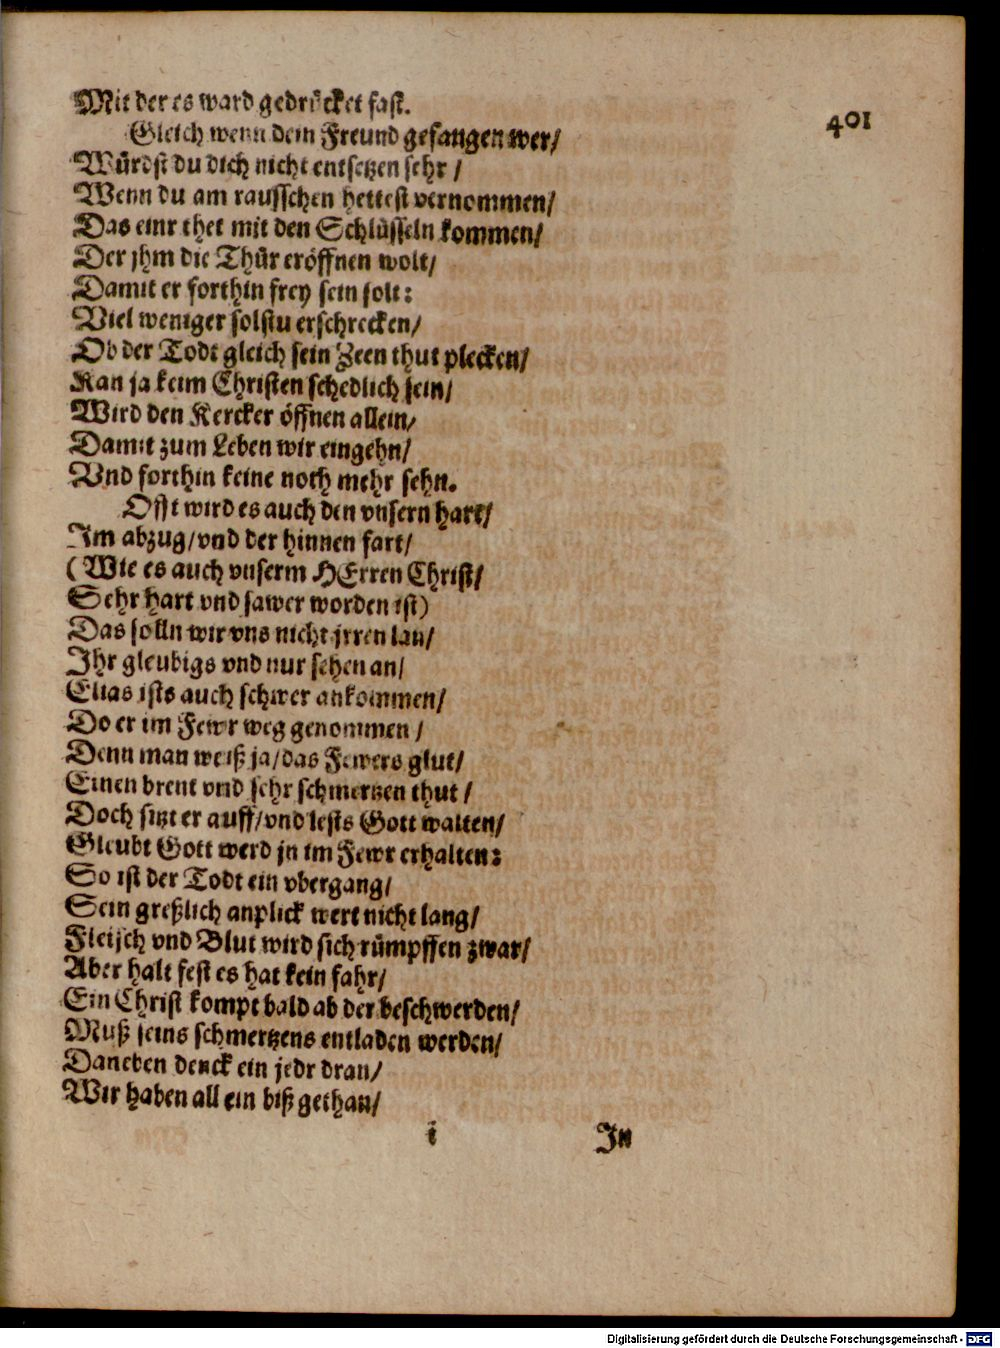 401
Mit der es ward gedrücket fast.
Gleich wenn dein Freund gefangen wer/
Würdst du dich nicht entsetzen sehr/
Wenn du am rausschen hettest vernommen/
Das einr thet mit den Schlüsseln kommen/
Der jhm die Thür eröffnen wolt/
Damit er forthin frey sein solt:
Viel weniger solstu erschrecken/
Ob der Todt gleich sein Zeen thut plecken/
Kan ja keim Christen schedlich sein/
Wird den Kercker öffnen allein/
Damit zum Leben wir eingehn/
Vnd forthin keine noth mehr sehn.
Offt wird es auch den vnsern hart/
Im abzug/vnd der hinnen fart/
(Wie es auch vnserm HErren Christ/
Sehr hart vnd sawer worden ist)
Das solln wir vns nicht jrren lan/
Ihr gleubigs vnd nur sehen an/
Elias ists auch schwer ankommen/
Do er im Fewr weg genommen/
Denn man weiß ja/das Fewers glut/
Einen brent vnd sehr schmertzen thut/
Doch sitzt er auff/vnd lests Gott walten/
Gleubt Gott werd jn im Fewr erhalten:
So ist der Todt ein vbergang/
Sein greßlich anplick wert nicht lang/
Fleisch vnd Blut wird sich rümpffen zwar/
Aber halt fest es hat kein fahr/
Ein Christ kompt bald ab der beschwerden/
Muß seins schmertzens entladen werden/
Daneben denck ein jedr dran/
Wir haben all ein biß gethan/
i In
Digitalisierung gefördert durch die Deutsche Forschungsgemeinschaft - DFG